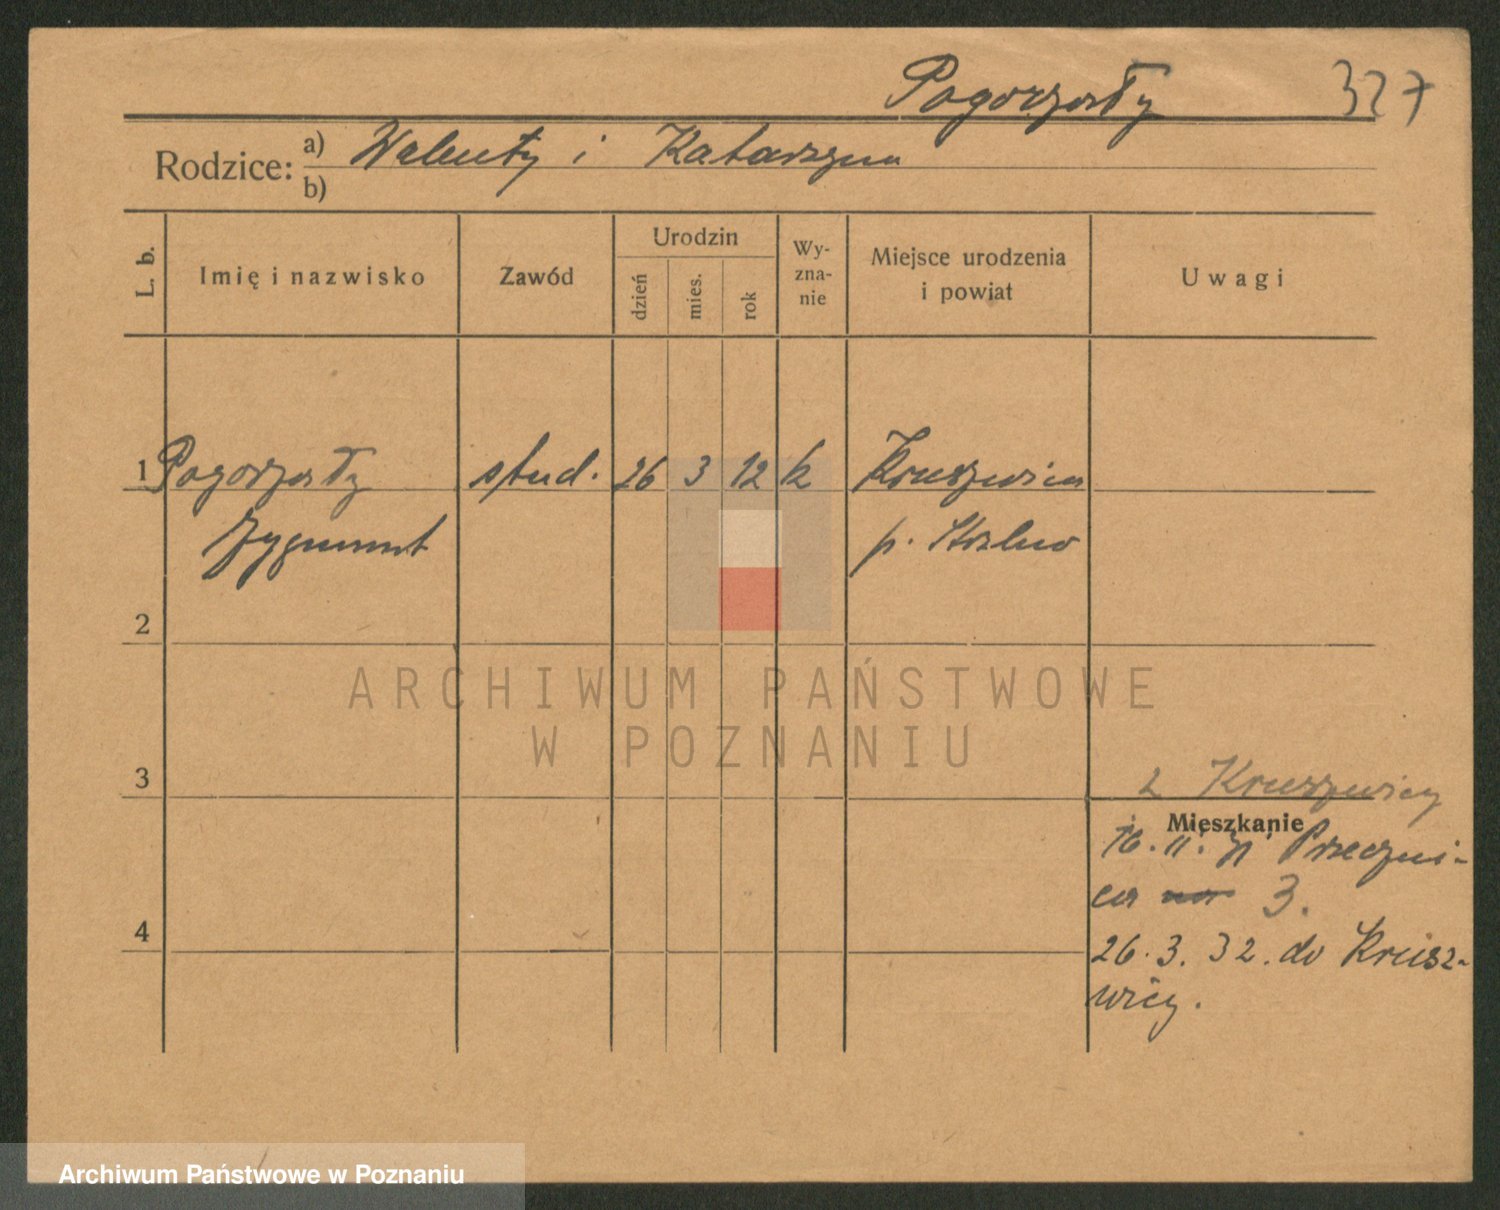 Pogorzały 327
Rodzice: a) Walenty i Katarzyna
b)
L. b.
Imię i nazwisko
Zawód
Urodzin
dzień
mies.
rok
Wy-
zna-
nie
Miejsce urodzenia
i powiat
Uwagi
1 Pogorzały stud. 26 3 12 k Kruszwica
Zygmunt p. Strzelno
2
ARCHIWUM PAŃSTWOWE
W POZNANIU
3
z Kruszwicy
Mieszkanie
16. II. 31 Przeczni-
ca 3.
4
26. 3. 32. do Krusz-
wicy.
Archiwum Państwowe w Poznaniu